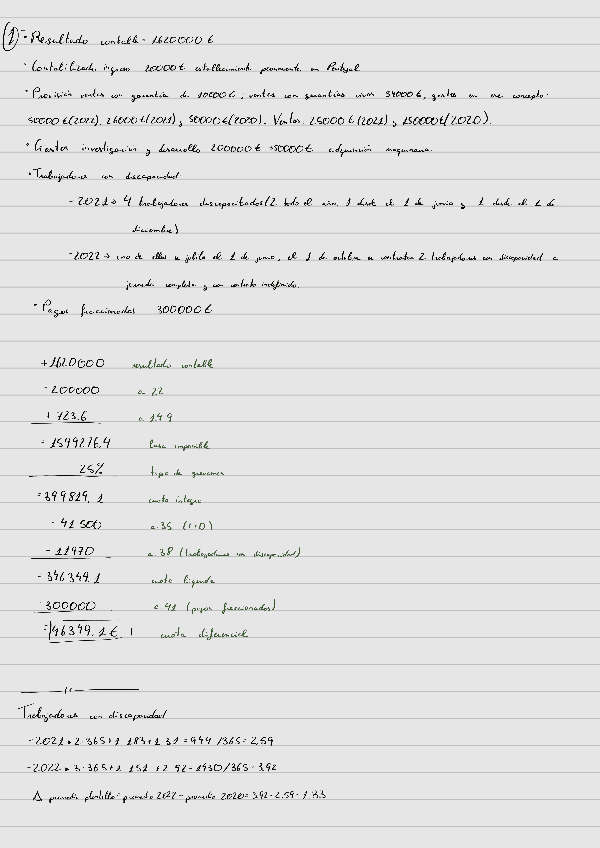 ① - Resultado contable - 1620000 €
· Contabilizado ingreso 20000 € establecimiento permanente en Portugal
· Provisión ventas con garantía de 10000 €, ventas con garantías vivas 54000 €, gastos en ese concepto:
50000 € (2022), 26000 € (2021) y 50000 € (2020). Ventas 25000 € (2021) y 150000 € (2020).
· Gastos investigación y desarrollo 200000 € → 50000 € adquisición maquinaria.
· Trabajadores con discapacidad
- 2021 → 4 trabajadores discapacitados (2 todo el año, 1 desde el 1 de junio y 1 desde el 1 de
diciembre)
- 2022 → uno de ellos se jubila el 1 de junio, el 1 de octubre se contratan 2 trabajadores con discapacidad a
jornada completa y con contrato indefinido.
· Pagos fraccionados 300000 €
+ 1620000 resultado contable
- 200000 a. 22
+ 723.6 a. 14.9
= 1599276,4 base imponible
25% tipo de gravamen
= 399819,1 cuota íntegra
- 41500 a. 35 (I+D)
- 11970 a. 38 (trabajadores con discapacidad)
- 346349,1 cuota líquida
300000 a. 41 (pagos fraccionados)
= 46349,1 € cuota diferencial
Trabajadores con discapacidad
- 2021 → 2·365+1·183+1·31 = 944 /365 = 2,59
- 2022 → 3·365+1·151+2·92 = 1430/365 = 3,92
Δ promedio plantilla = promedio 2022 - promedio 2020 = 3,92 - 2,59 = 1,33